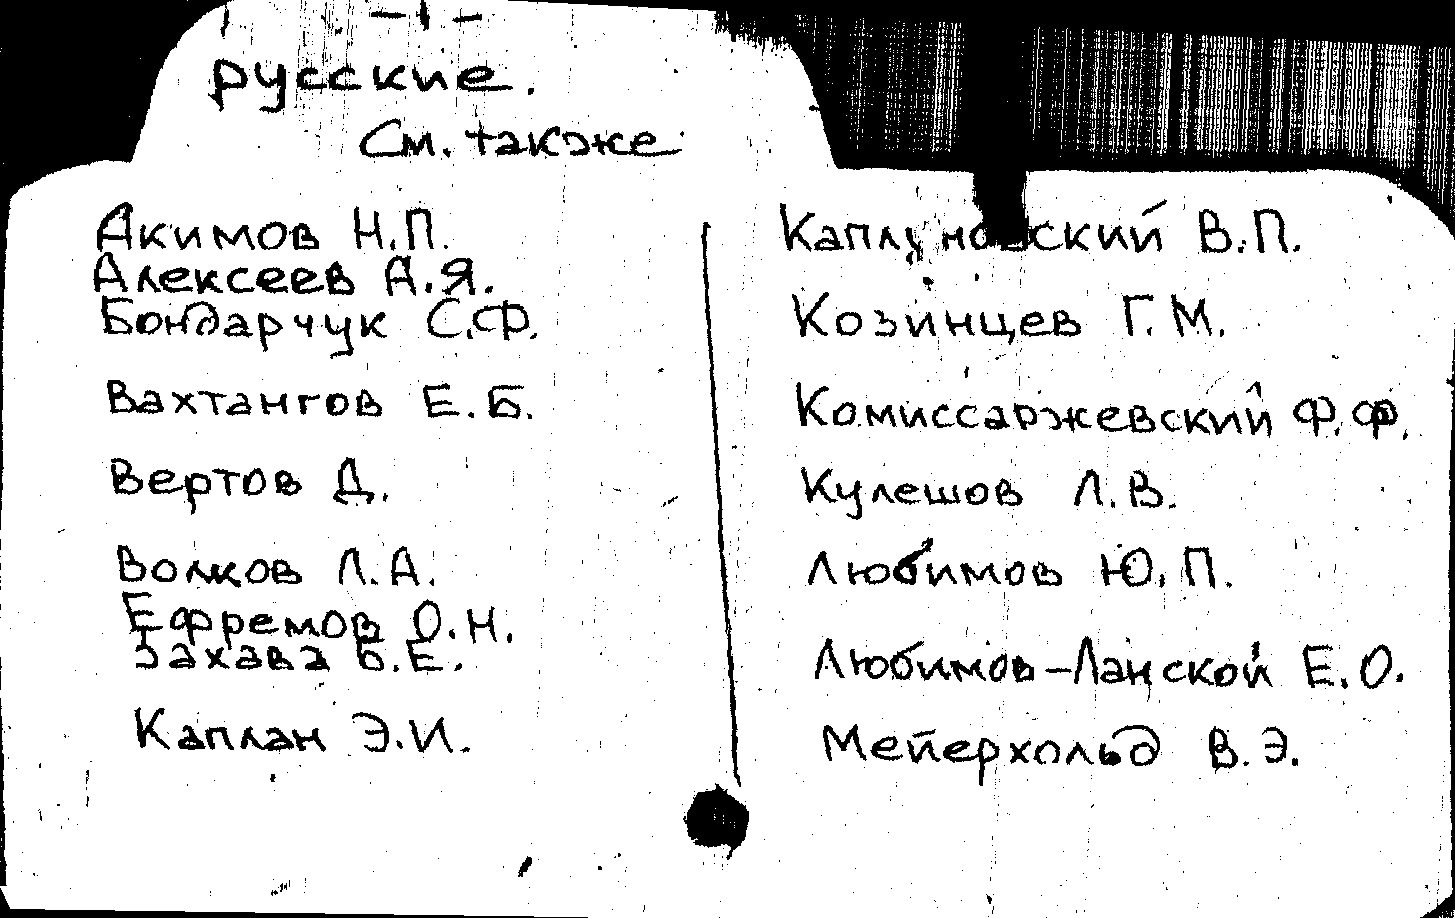 - 1 -
русские.
См. также
Акимов Н.П.
Алексеев А.Я.
Бондарчук С.Ф.
Вахтангов Е.Б.
Вертов Д.
Волков Л.А.
Ефремов О.Н.
Захава Б.Е.
Каплан Э.И.
Каплуновский В.П.
Козинцев Г.М.
Комиссаржевский Ф.Ф.
Кулешов Л.В.
Любимов Ю.П.
Любимов-Ланской Е.О.
Мейерхольд В.Э.